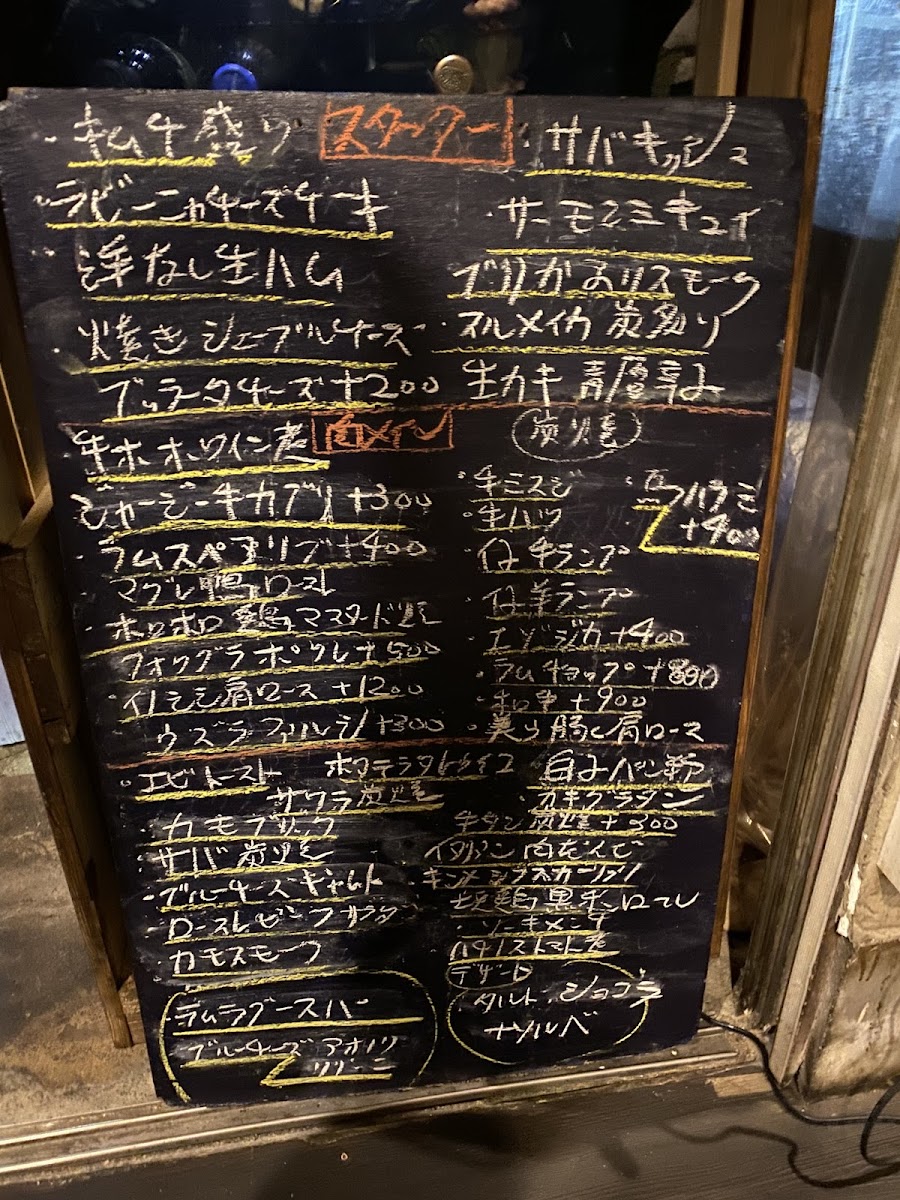 スターター
・キムチ盛り
・ラビーニャチーズケーキ
洋なし生ハム
・焼きシェーブルチーズ
ブッラータチーズ+200
・サバキッシュ
・サーモンミキュイ
ブリかおりスモーク
・スルメイカ 炭炙り
生カキ 青唐辛み
肉メイン
牛ホホワイン煮
ジャージー牛カブリ+300
・ラムスペアリブ+400
マグレ鴨ロースト
・ホロホロ鶏マスタード煮
フォワグラポワレ+500
・イノシシ肩ロース+1200
ウズラファルシ+300
炭火焼
・牛ミスジ
・牛ハツ
・仔牛ランプ
・仔羊ランプ
・エゾジカ+400
・ラムチョップ+800
・和牛+900
・美り豚肩ロース
馬ハラミ
+400
・エビトースト
ホタテラタトゥイユ
白子パン粉
サワラ炭火焼
・カキグラタン
・カモブリック
牛タン炭焼+300
・サバ炭火焼
・ブルーチーズ
・ローストビーフサラダ
・カモスモーク
・ハチノストマト煮
ラムラグースパ
ブルーチーズアオノリ
デザート
タルト・ショコラ
ソルベ